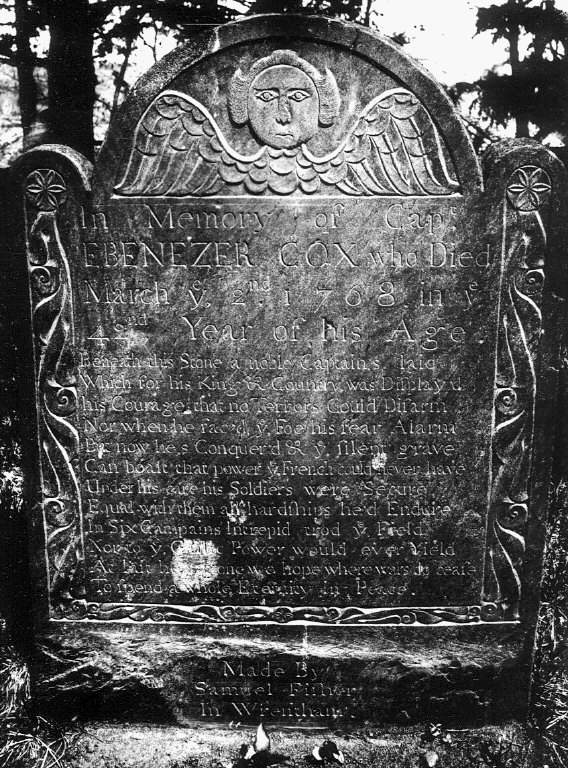 In Memory of Capt.
EBENEZER COX who Died
March ye. 2nd. 1768, in ye.
42nd Year of his Age
Beneath this Stone a noble Captain's laid
Which for his King & Country was Display'd
his Courage that no Terrors Could Disarm
Nor when he fac'd ye. Foe his fear Alarm
But now he,s Conquer'd & ye. silent grave
Can boast that power ye French could never have
Under his care his Soldiers were Secure
Equal with them all hardships he'd Endure
In Six Campains Intrepid trod ye Field
Nor to ye Power would ever Yield
At last he's gone we hope where wars do cease
To spend a whole Eternity in Peace.
Made By
Samuel Fisher
In Wrentham.